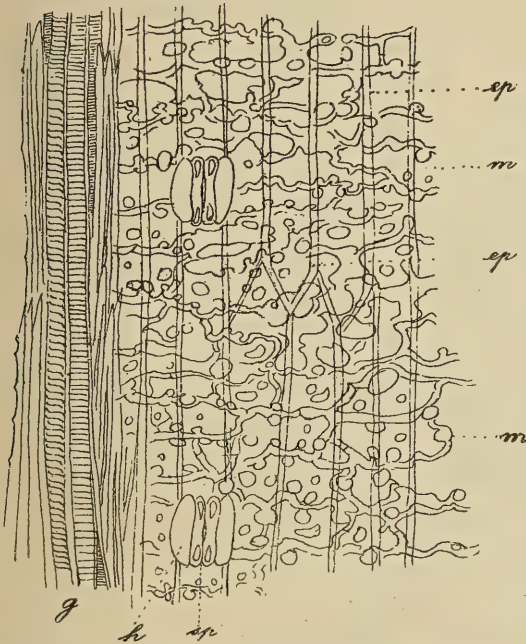 ep
m
ep
m
g
h
sp